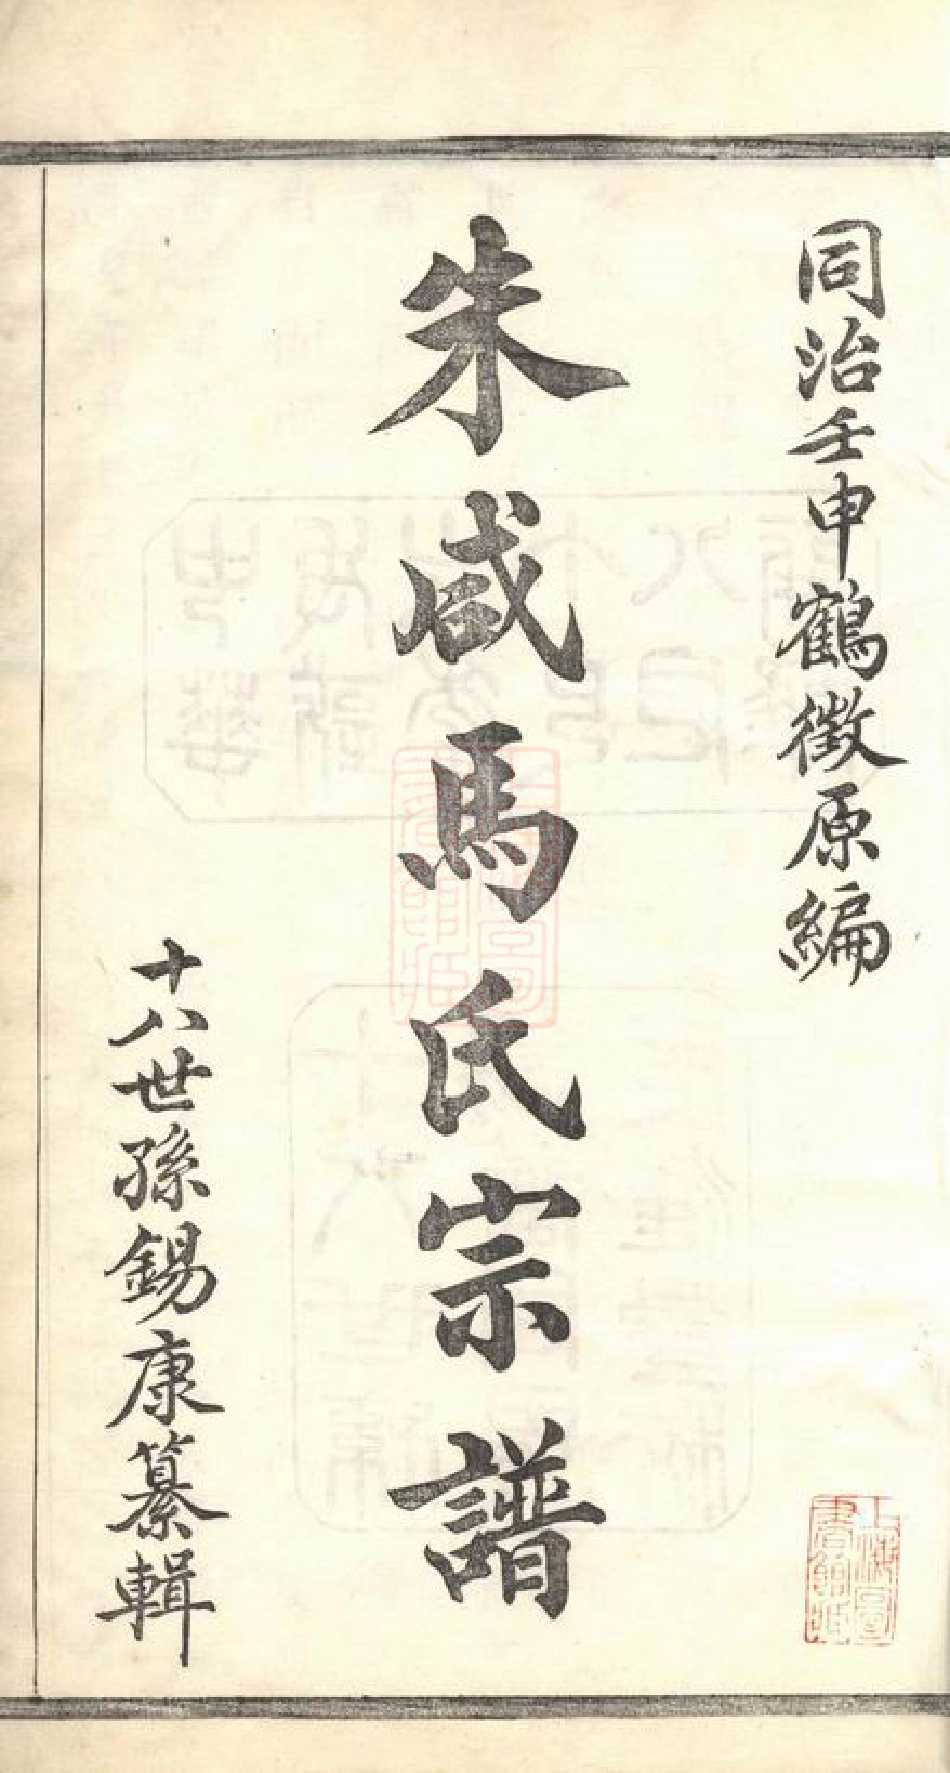 同治壬申鶴徵原編
朱咸馬氏宗譜
十八世孫錫康纂輯
上海圖
書館藏